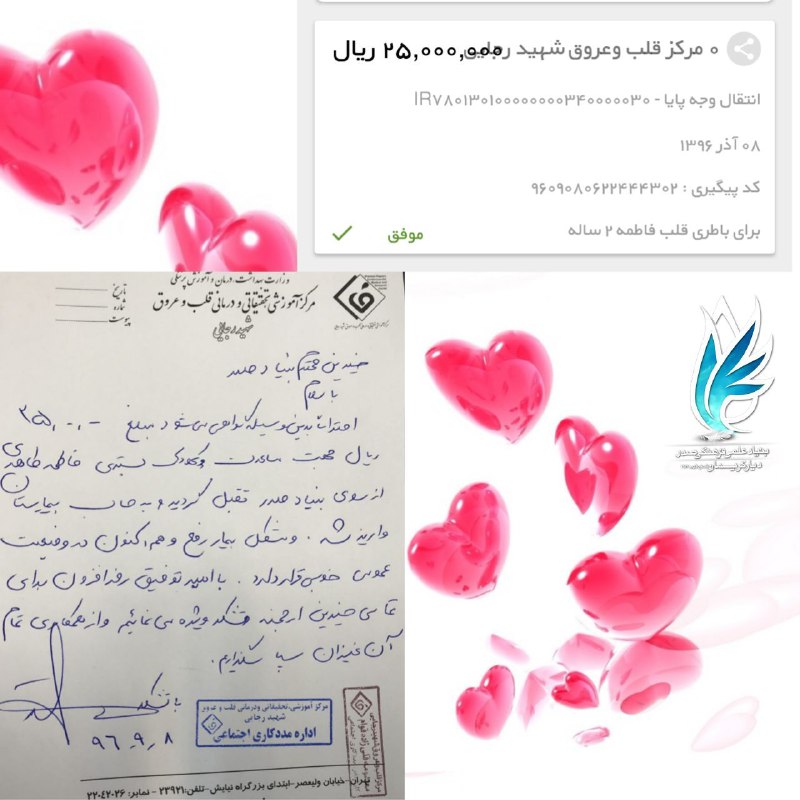 مرکز قلب وعروق شهید رجایی 25,000,000 ریال
انتقال وجه پایا - IR780130100000000340000030
08 آذر 1396
کد پیگیری : 9609080622444302
برای باطری قلب فاطمه 2 ساله
موفق
وزارت بهداشت، درمان و آموزش پزشکی
مرکز آموزشی تحقیقاتی و درمانی قلب و عروق
شهید رجایی
تاریخ
شماره
پیوست
خیرین محترم بنیاد صدر
با سلام
احتراما بدین وسیله گواهی می شود مبلغ
ریال جهت مساعدت کودک بستری فاطمه طاهری
از سوی بنیاد صدر تقبل گردید و به حساب بیمارستان
واریز شد . و مشکل بیمار رفع و هم اکنون در وضعیت
عمومی خوبی قرار دارد . با امید توفیق روز افزون برای
تمامی خیرین ارجمند تشکر ویژه می نمائیم و از همکاری تمام
آن عزیزان سپاسگذارم .
با تشکر
96_9_8
مرکز آموزشی، تحقیقاتی ودرمانی قلب و عروق
شهید رجایی
اداره مددکاری اجتماعی
تهران-خیابان ولیعصر-ابتدای بزرگراه نیایش-تلفن: 23921 - نمابر: 22042026
بنیاد علمی فرهنگی صدر
دیار کریمان